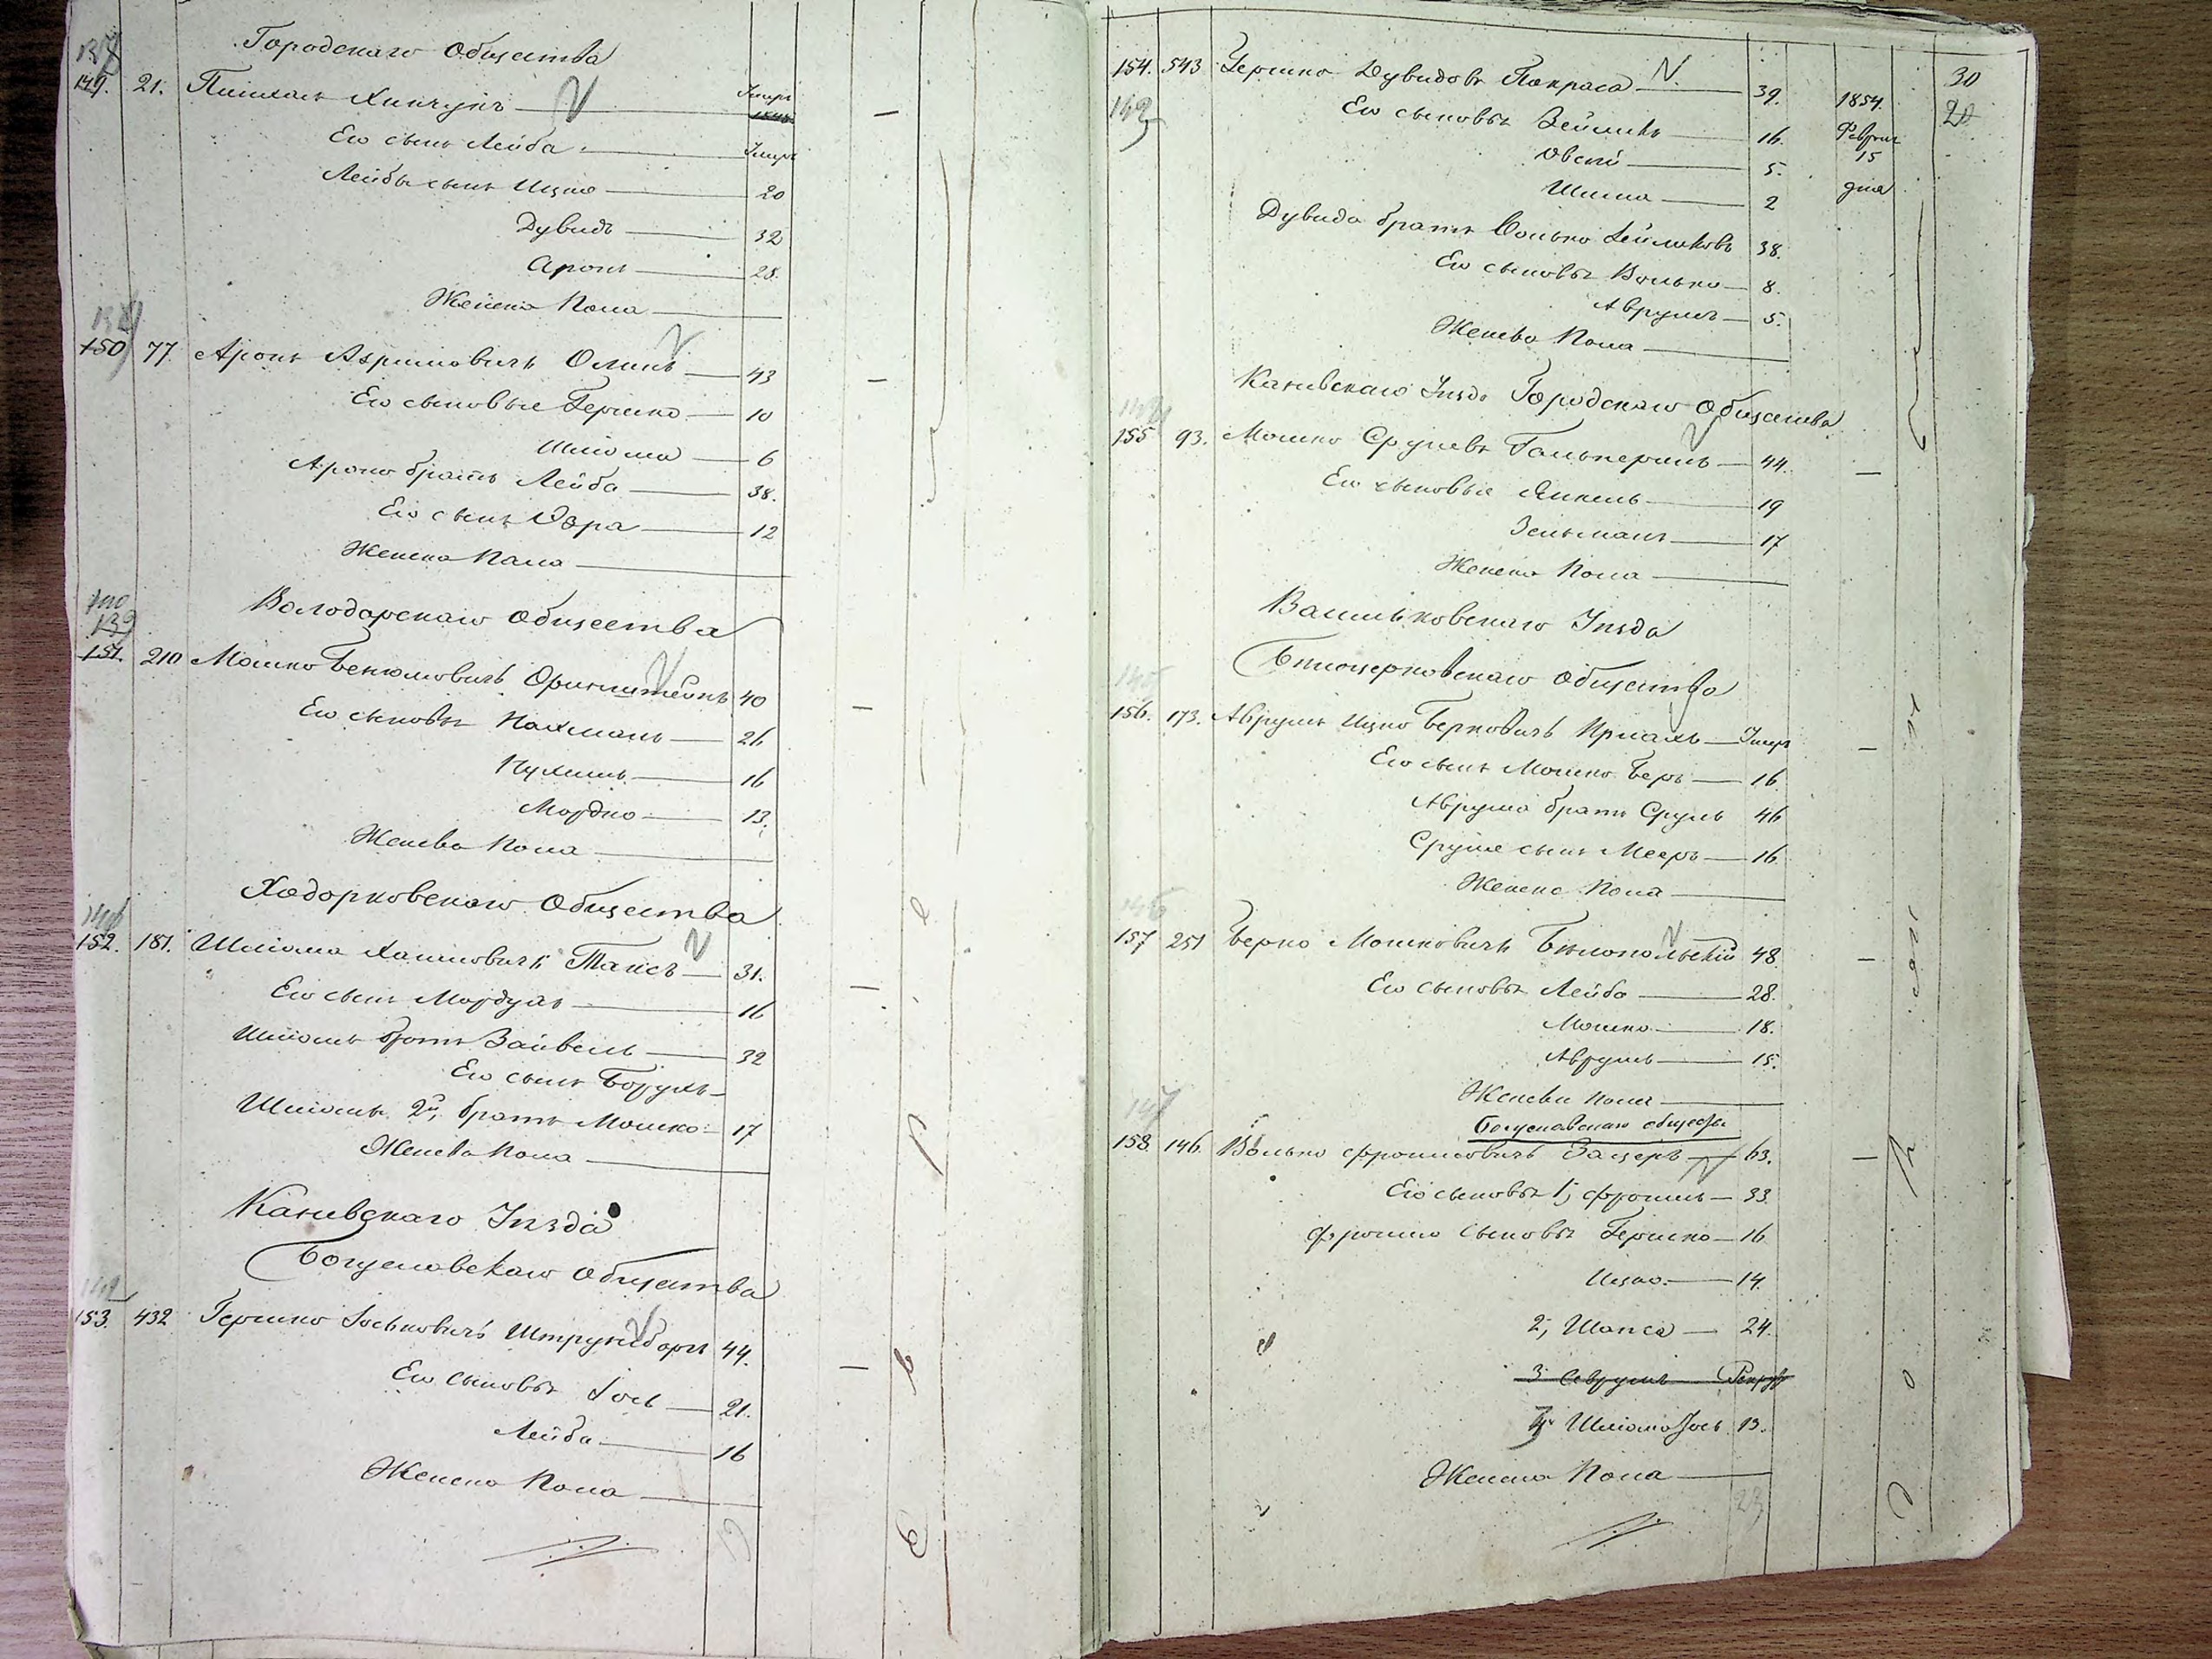 Городскаго Общества
149. 21. Пинхасъ Хинчукъ — Умеръ —
Его сынъ Лейба — Умеръ
Лейбы сынъ Ицко — 20
Дувидъ — 32
Аронъ — 28.
Женска Пола —
150 77. Аронъ Абрамовичъ — 43 —
Его сыновья Гершко — 10
Шлiома — 6
Арона братъ Лейба — 38.
Его сынъ — 12
Женска Пола —
Володарскаго Общества
139
151. 210 Мошко Бенюмовичъ Оринштейнъ 40 —
Его сыновья Нахманъ — 26
16
Мордко — 13.
Женска Пола —
Ходорковскаго Общества
152. 181. Шлiома Хаимовичъ Таксъ — 31. —
Его сынъ Мордухъ — 16
Шлiомы братъ Зайвель — 32
Его сынъ Борухъ —
Шлiомы 2й, братъ Мошко — 17
Женска Пола —
Каневскаго Уѣзда
Богуславскаго Общества
153. 432 Гершко Iоськовичъ 44. —
Его сыновья Iось — 21.
Лейба — 16
Женска Пола —
154. 543 Гершко Дувидовъ Покраса — 39. 1854. 30
Его сыновья Зейликъ — 16. Февраля
Овсiй — 5. 15
2 дня
Дувида братъ Волько Зейликовъ 38.
Его сыновья Волько — 8.
Аврумъ — 5.
Женска Пола —
Каневскаго Уѣзда Городскаго Общества
155 93. Мошко Срулевъ Гальперинъ — 44. —
Его сыновья Янкель — 19
Зельманъ — 17
Женска Пола —
Васильковскаго Уѣзда
Бѣлоцерковскаго Общества
145
156. 173. Аврумъ Ицко Берковичъ — Умеръ —
Его сынъ Мошко Беръ — 16
Аврума братъ Сруль 46
Сруля сынъ Мееръ — 16
Женска Пола —
146
157 251 Берко Мошковичъ Бѣлопольскiй 48. —
Его сыновья Лейба — 28.
Мошко — 18.
Аврумъ — 15.
Женска пола —
147
Богуславскаго общества
158 146. Волько Фроимовичъ — 63. —
Его сыновья 1, Фроимъ — 33
Фроима сыновья Гершко — 16
Ицко — 14.
2, Шапса — 24.
3 Аврумъ — Рекрут
Шлiома Iось 13.
Женска Пола —
23